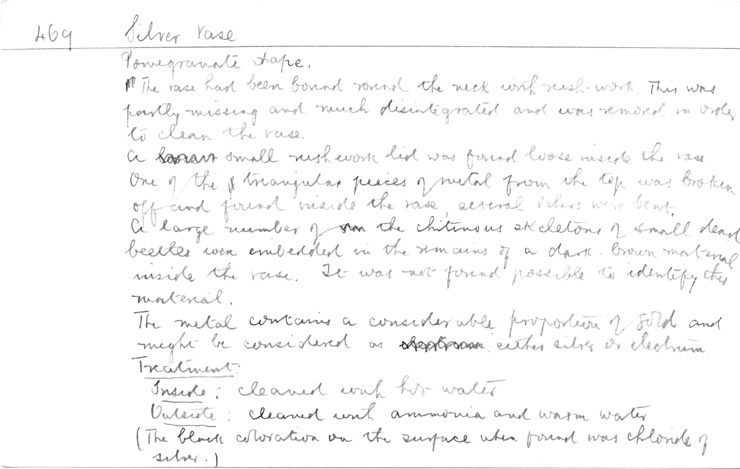 469 Silver vase
Pomegranate shape.
The vase had been bound round the neck with rush-work. This was
partly missing and much disintegrated and was removed in order
to clean the vase.
A small rushwork lid was found loose inside the vase
One of the triangular pieces of metal from the top was broken
off and found inside the vase, several others were bent.
A large number of the chitinous skeletons of small dead
beetles were embedded in the remains of a dark-brown material
inside the vase. It was not found possible to identify this
material.
The metal contains a considerable proportion of gold and
might be considered as either silver or electrum
Treatment:
Inside: cleaned with hot water
Outside: cleaned with ammonia and warm water
(The black coloration on the surface when found was chloride of
silver.)